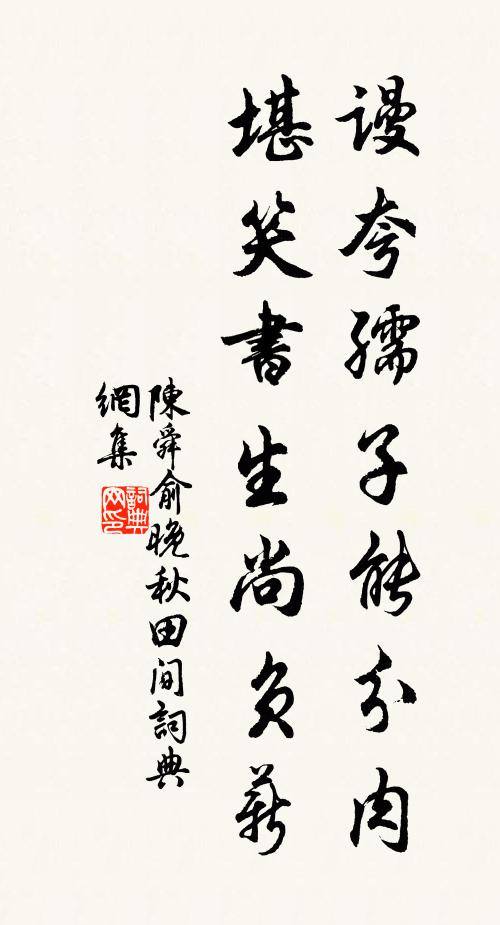 謾夸孺子能分肉
堪笑書生尚負薪
陳舜俞晚秋田間詞典
網集
詞典
网印